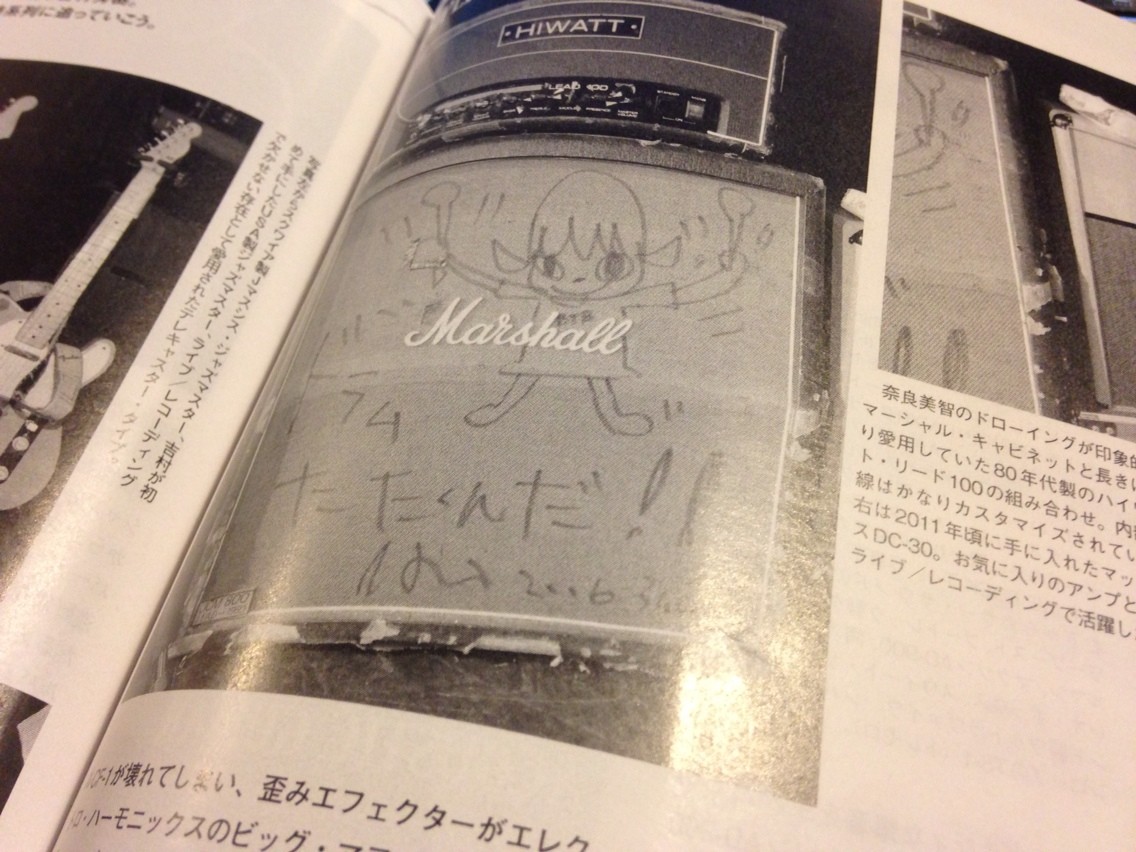 系列に追っていこう。
写真左からスクワイア製Jマスシス・ジャズマスター、吉村が初
めて手にしたUSA製ジャズマスター。ライブ/レコーディング
で欠かせない存在として愛用されたテレキャスター・タイプ。
HIWATT
LEAD 100
Marshall
たたくんだ!!
2006.3
奈良美智のドローイングが印象的
マーシャル・キャビネットと長き
り愛用していた80年代製のハイ
ト・リード100の組み合わせ。内
線はかなりカスタマイズされてい
右は2011年頃に手に入れたマッ
スDC-30。お気に入りのアンプと
ライブ/レコーディングで活躍し
が壊れてしまい、歪みエフェクターがエレク
ロ・ハーモニックスのビッグ・マフ